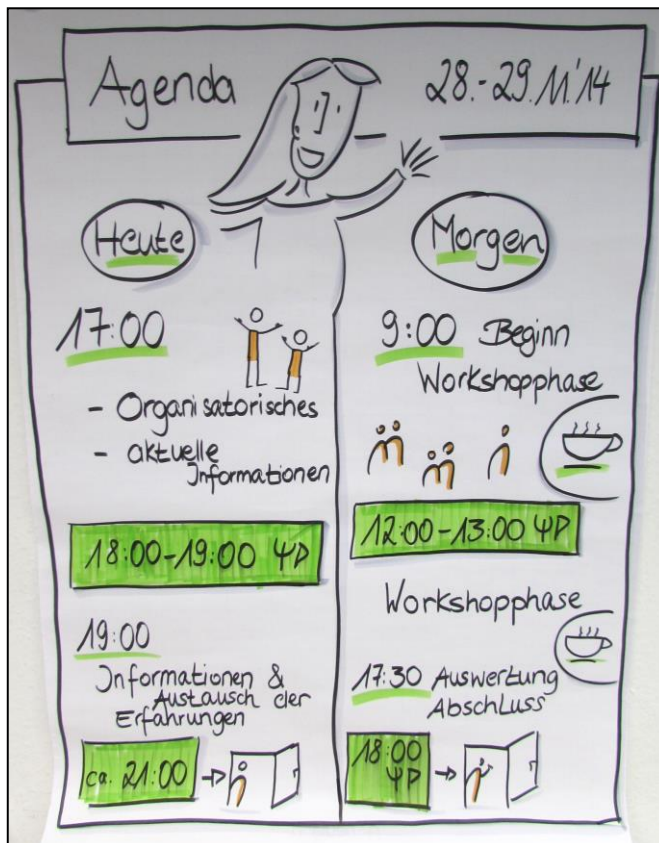 Agenda
28.-29.11.'14
Heute
17:00
- Organisatorisches
- aktuelle
Informationen
18:00-19:00
19:00
Informationen &
Austausch der
Erfahrungen
ca. 21:00
Morgen
9:00 Beginn
Workshopphase
12:00-13:00
Workshopphase
17:30 Auswertung
Abschluss
18:00